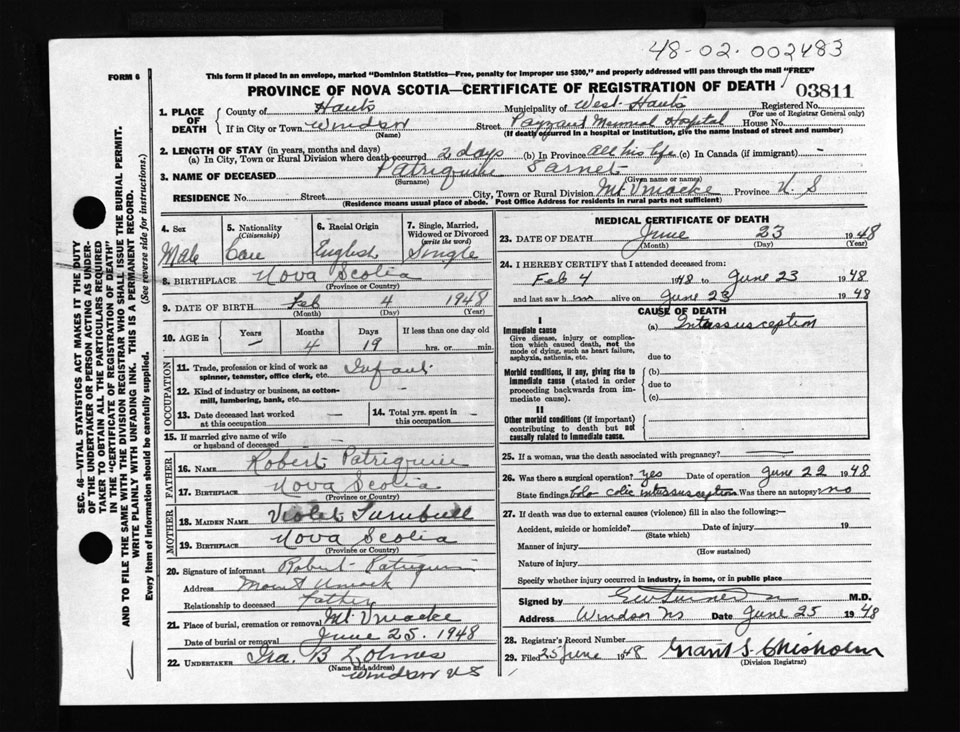 48-02-002483
FORM 6
This form if placed in an envelope, marked "Dominion Statistics—Free, penalty for improper use $300," and properly addressed will pass through the mail "FREE"
PROVINCE OF NOVA SCOTIA—CERTIFICATE OF REGISTRATION OF DEATH
03811
1. PLACE OF DEATH
County of Hants Municipality of West Hants Registered No.
(For use of Registrar General only)
If in City or Town Windsor Street Payzant Memorial Hospital House No.
(Name) (If death occurred in a hospital or institution, give the name instead of street and number)
2. LENGTH OF STAY (in years, months and days)
(a) In City, Town or Rural Division where death occurred 2 days (b) In Province All his life (c) In Canada (if immigrant) -
3. NAME OF DECEASED Patriquin
(Surname) (Given name or names)
RESIDENCE No. Street City, Town or Rural Division Mt Uniacke Province N. S
(Residence means usual place of abode. Post Office Address for residents in rural parts not sufficient)
4. Sex
Male
5. Nationality
(Citizenship)
Can
6. Racial Origin
English
7. Single, Married, Widowed or Divorced
(write the word)
Single
8. BIRTHPLACE Nova Scotia
(Province or Country)
9. DATE OF BIRTH Feb 4 1948
(Month) (Day) (Year)
10. AGE in
Years Months Days If less than one day old
— 4 19 hrs. or min.
OCCUPATION
11. Trade, profession or kind of work as spinner, teamster, office clerk, etc. Infant
12. Kind of industry or business, as cotton-mill, lumbering, bank, etc. -
13. Date deceased last worked at this occupation —
14. Total yrs. spent in this occupation -
15. If married give name of wife or husband of deceased
FATHER
16. NAME Robert Patriquin
17. BIRTHPLACE Nova Scotia
(Province or Country)
MOTHER
18. MAIDEN NAME Violet Turnbull
19. BIRTHPLACE Nova Scotia
(Province or Country)
20. Signature of informant Robert Patriquin
Address Mount
Relationship to deceased Father
21. Place of burial, cremation or removal Mt. Uniacke
Date of burial or removal June 25. 1948
22. UNDERTAKER Ira. B Lohnes
(Name and address)
Windsor NS
MEDICAL CERTIFICATE OF DEATH
23. DATE OF DEATH June 23 1948
(Month) (Day) (Year)
24. I HEREBY CERTIFY that I attended deceased from:
Feb 4 1948 to June 23 1948
and last saw h im alive on June 23 1948
CAUSE OF DEATH
I
Immediate cause
Give disease, injury or complication which caused death, not the mode of dying, such as heart failure, asphyxia, asthenia, etc.
(a) Intussusception
due to
Morbid conditions, if any, giving rise to immediate cause (stated in order proceeding backwards from immediate cause).
(b)
due to
(c)
II
Other morbid conditions (if important) contributing to death but not causally related to immediate cause.
25. If a woman, was the death associated with pregnancy?
26. Was there a surgical operation? yes Date of operation June 22 1948
State findings colic intussusception Was there an autopsy? no
27. If death was due to external causes (violence) fill in also the following:—
Accident, suicide or homicide? Date of injury 19
(State which)
Manner of injury
(How sustained)
Nature of injury
Specify whether injury occurred in industry, in home, or in public place
Signed by M.D.
Address Windsor NS Date June 25 1948
28. Registrar's Record Number
29. Filed 25 June 1948 Grant S. Chisholm
(Division Registrar)
SEC. 46—VITAL STATISTICS ACT MAKES IT THE DUTY
OF THE UNDERTAKER OR PERSON ACTING AS UNDER-
TAKER TO OBTAIN ALL THE PARTICULARS REQUIRED
IN THE "CERTIFICATE OF REGISTRATION OF DEATH"
AND TO FILE THE SAME WITH THE DIVISION REGISTRAR WHO SHALL ISSUE THE BURIAL PERMIT.
WRITE PLAINLY WITH UNFADING INK. THIS IS A PERMANENT RECORD.
Every item of information should be carefully supplied. (See reverse side for instructions.)